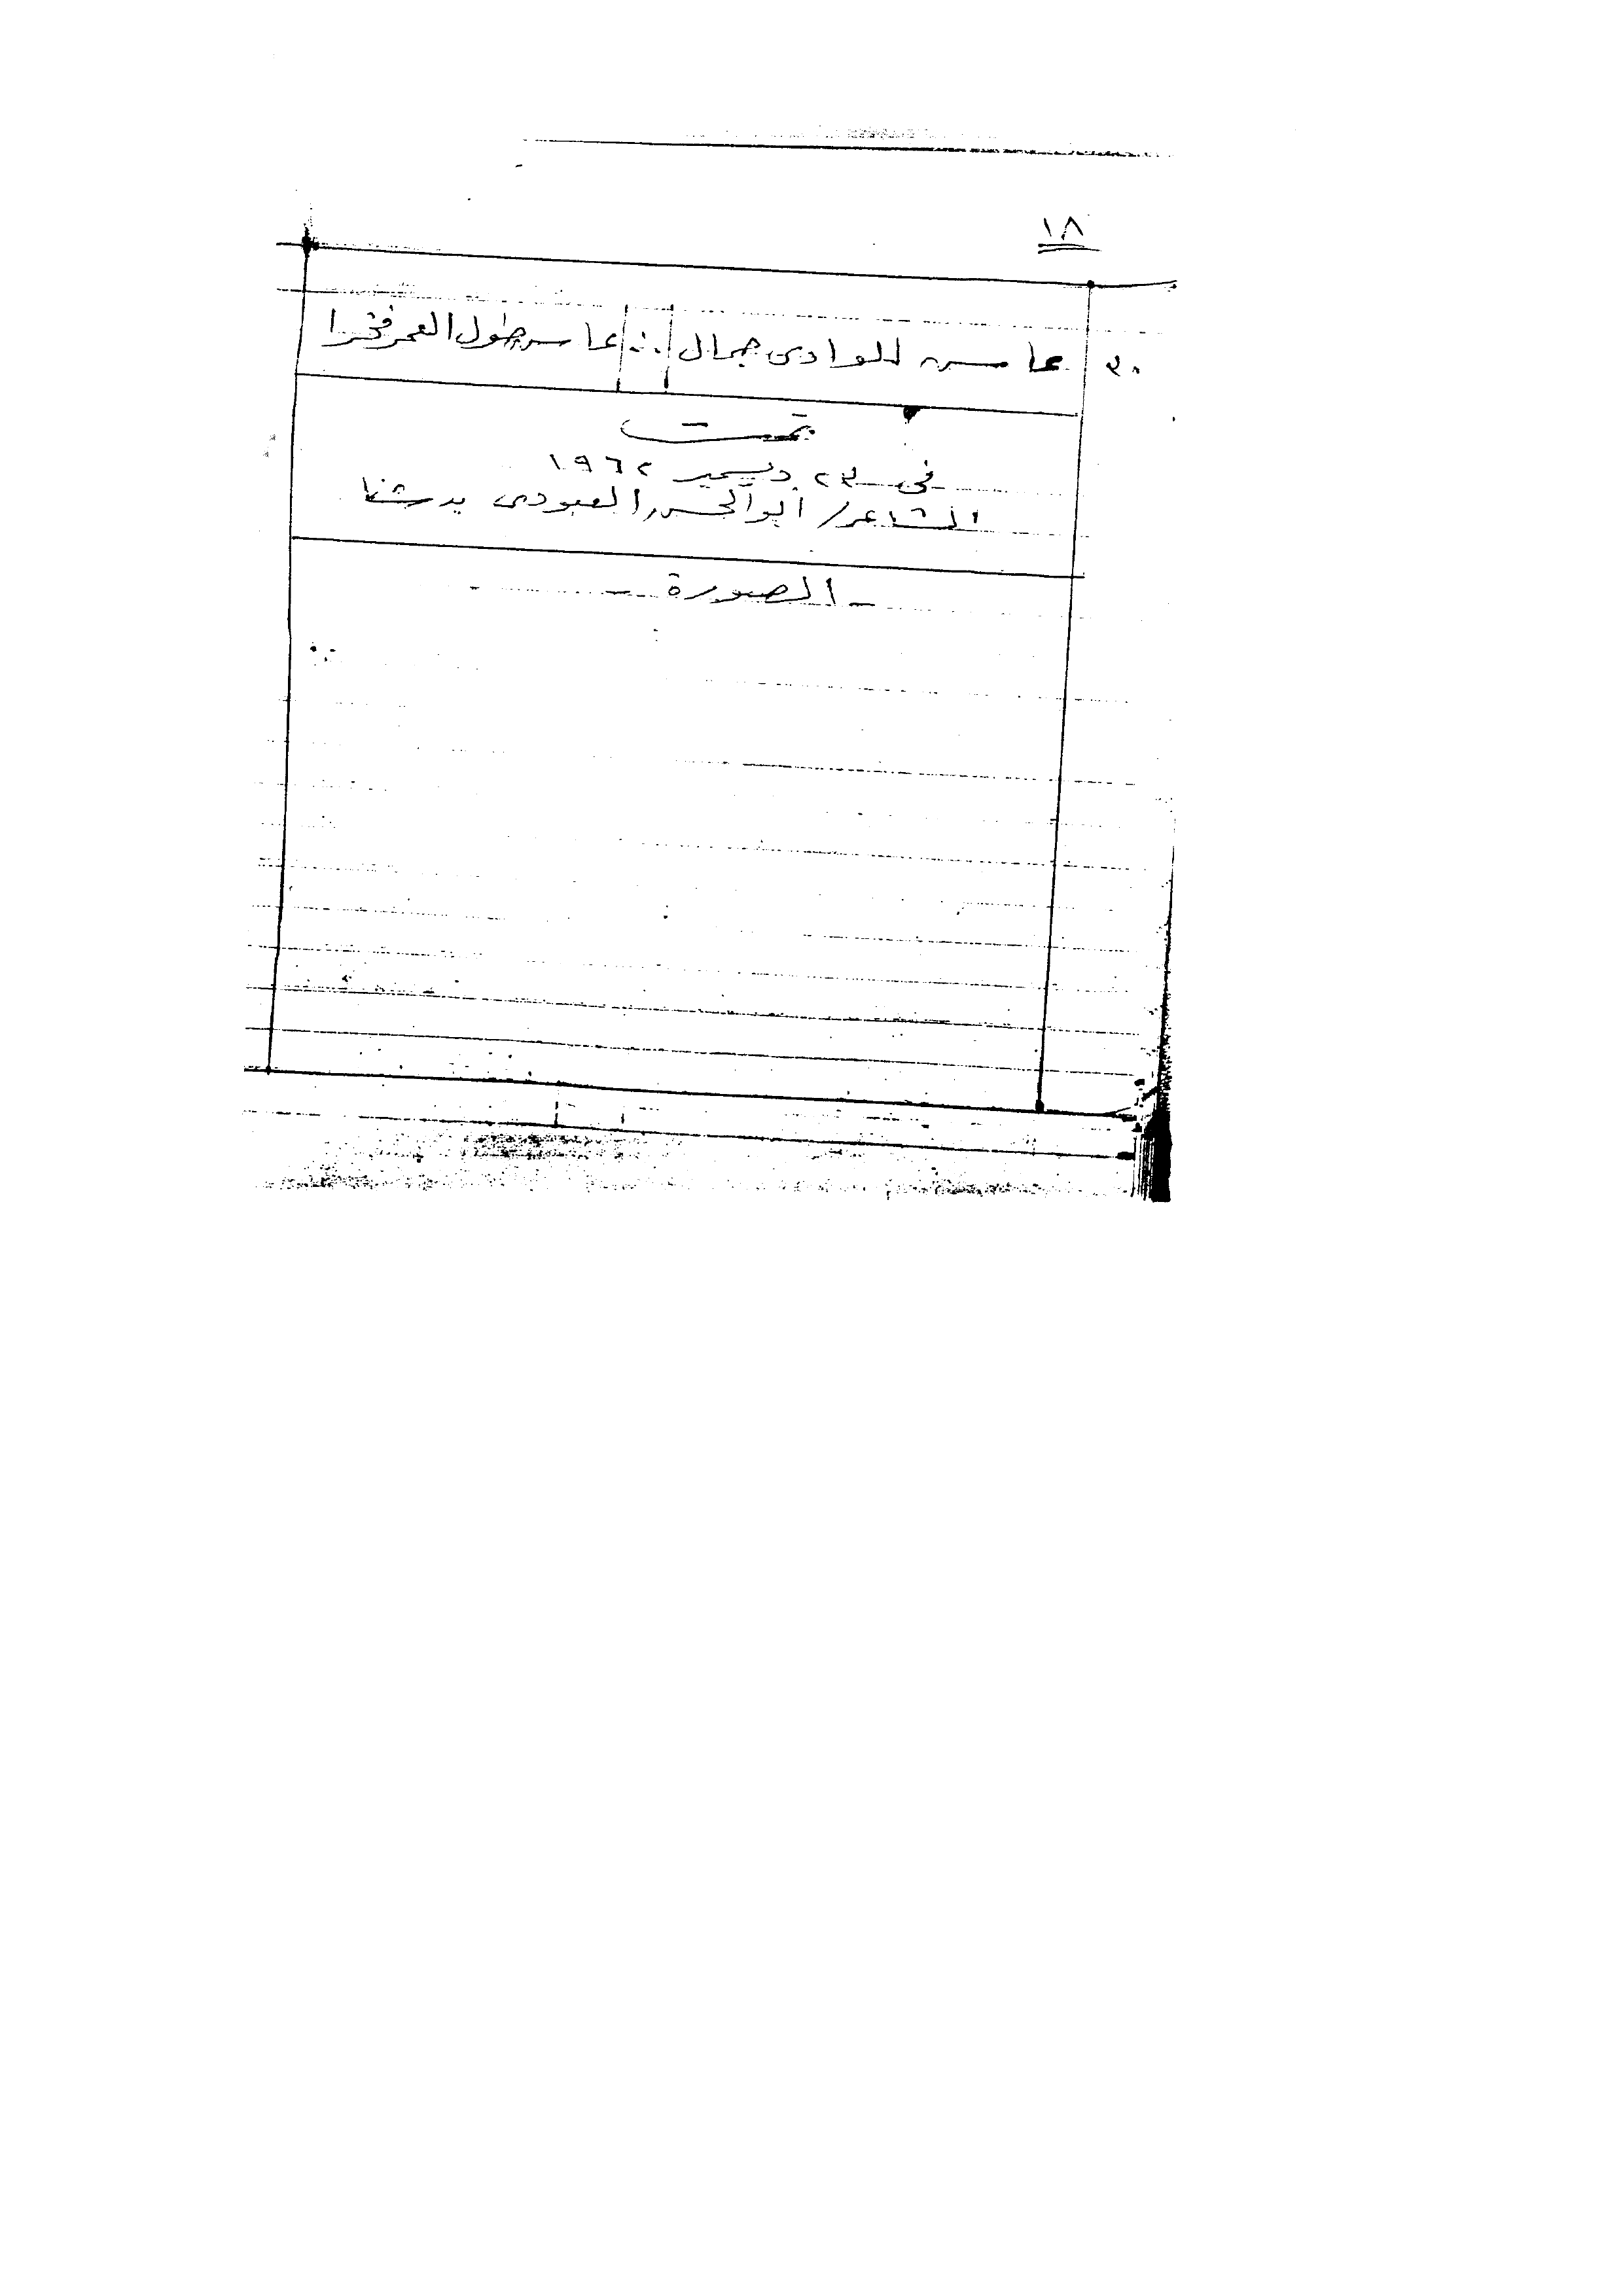 ١٨
٣٠ عاش للوادى جمال ∴ عاش طول العمر فخرا
تمت
فى ٢٣ ديسمبر ١٩٦٢
الشاعر/ أبوالحسن العبودى بدشنا
- الصورة -